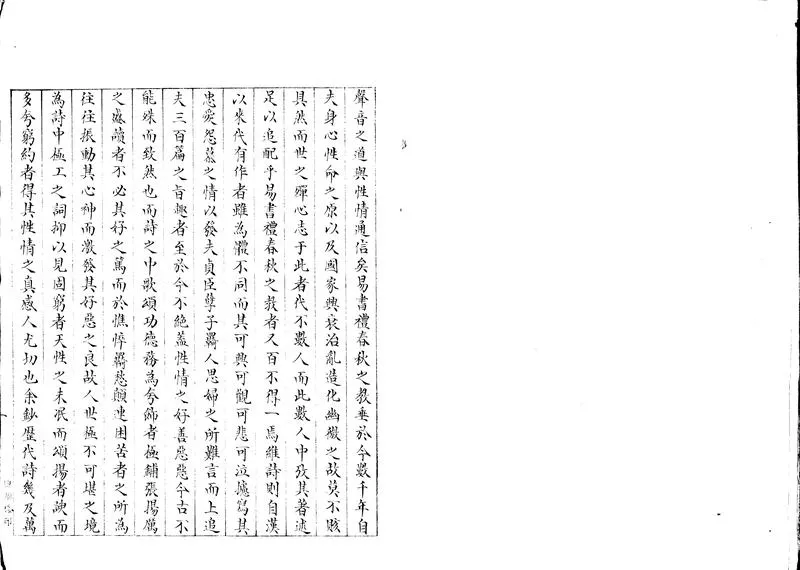 聲音之道與性情通信矣易書禮春秋之教垂於今數千年自
夫身心性命之原以及國家興衰治亂造化幽微之故莫不賅
具然而世之殫心志于此者代不數人而此數人中攷其著述
足以追配乎易書禮春秋之教者又百不得一焉維詩則自漢
以來代有作者雖為體不同而其可興可觀可悲可泣攄寫其
忠愛怨慕之情以發夫貞臣孽子羈人思婦之所難言而上追
夫三百篇之旨趣者至於今不絕蓋性情之好善惡惡今古不
能殊而致然也而詩之中歌頌功德務為夸飾者極鋪張揚厲
之盛讀者不必其好之篤而於憔悴羈愁顛連困苦者之所為
往往振動其心神而激發其好惡之良故人世極不可堪之境
為詩中極工之詞抑以見固窮者天性之未泯而頌揚者諛而
多夸窮約者得其性情之真感人尤切也余鈔歷代詩幾及萬